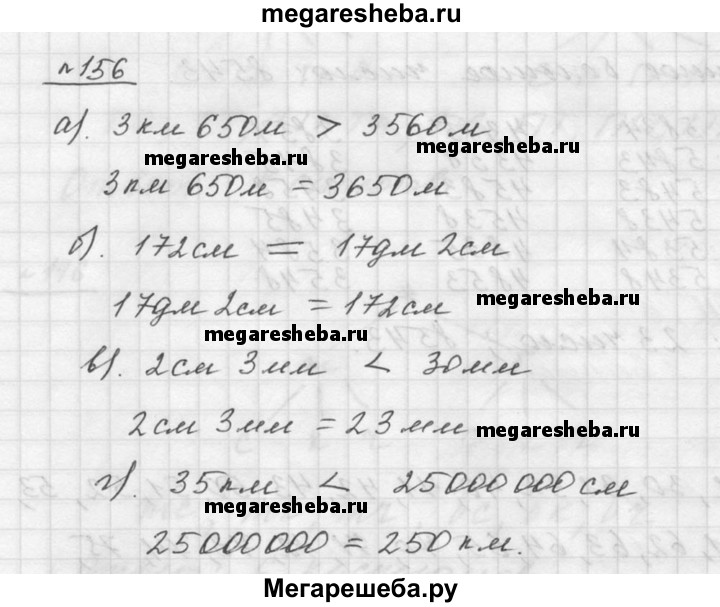 megaresheba.ru
№156
а). 3км 650м > 3560м
megaresheba.ru
megaresheba.ru
3км 650м = 3650м
б). 172см = 17дм 2см
17дм 2см = 172см
megaresheba.ru
megaresheba.ru
в). 2см 3мм < 30мм
2см 3мм = 23мм
megaresheba.ru
г). 35км < 25000000см
megaresheba.ru
25000000 = 250км.
Мегарешеба.ру